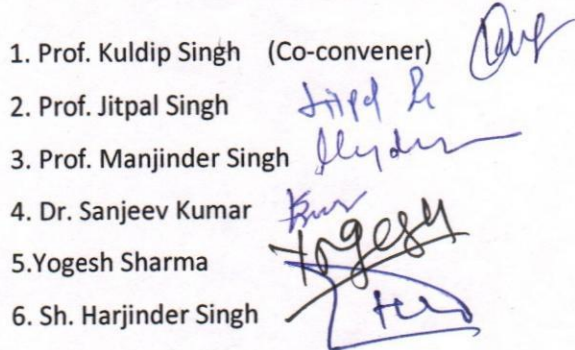 1. Prof. Kuldip Singh (Co-convener)
2. Prof. Jitpal Singh
3. Prof. Manjinder Singh
4. Dr. Sanjeev Kumar
5.Yogesh Sharma Yogesh
6. Sh. Harjinder Singh